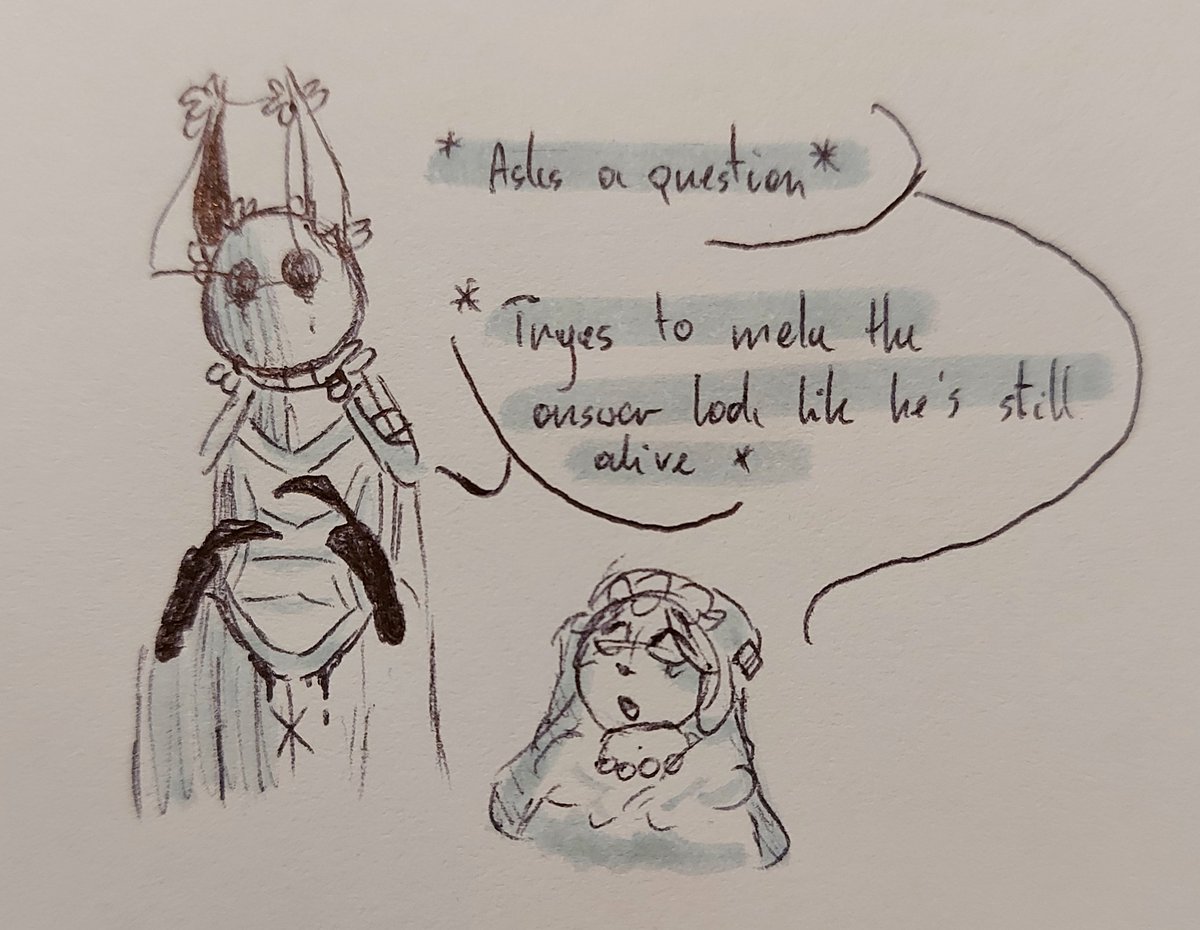 * Asks a question *
* Tryes to make the
answer look like he's still
alive *